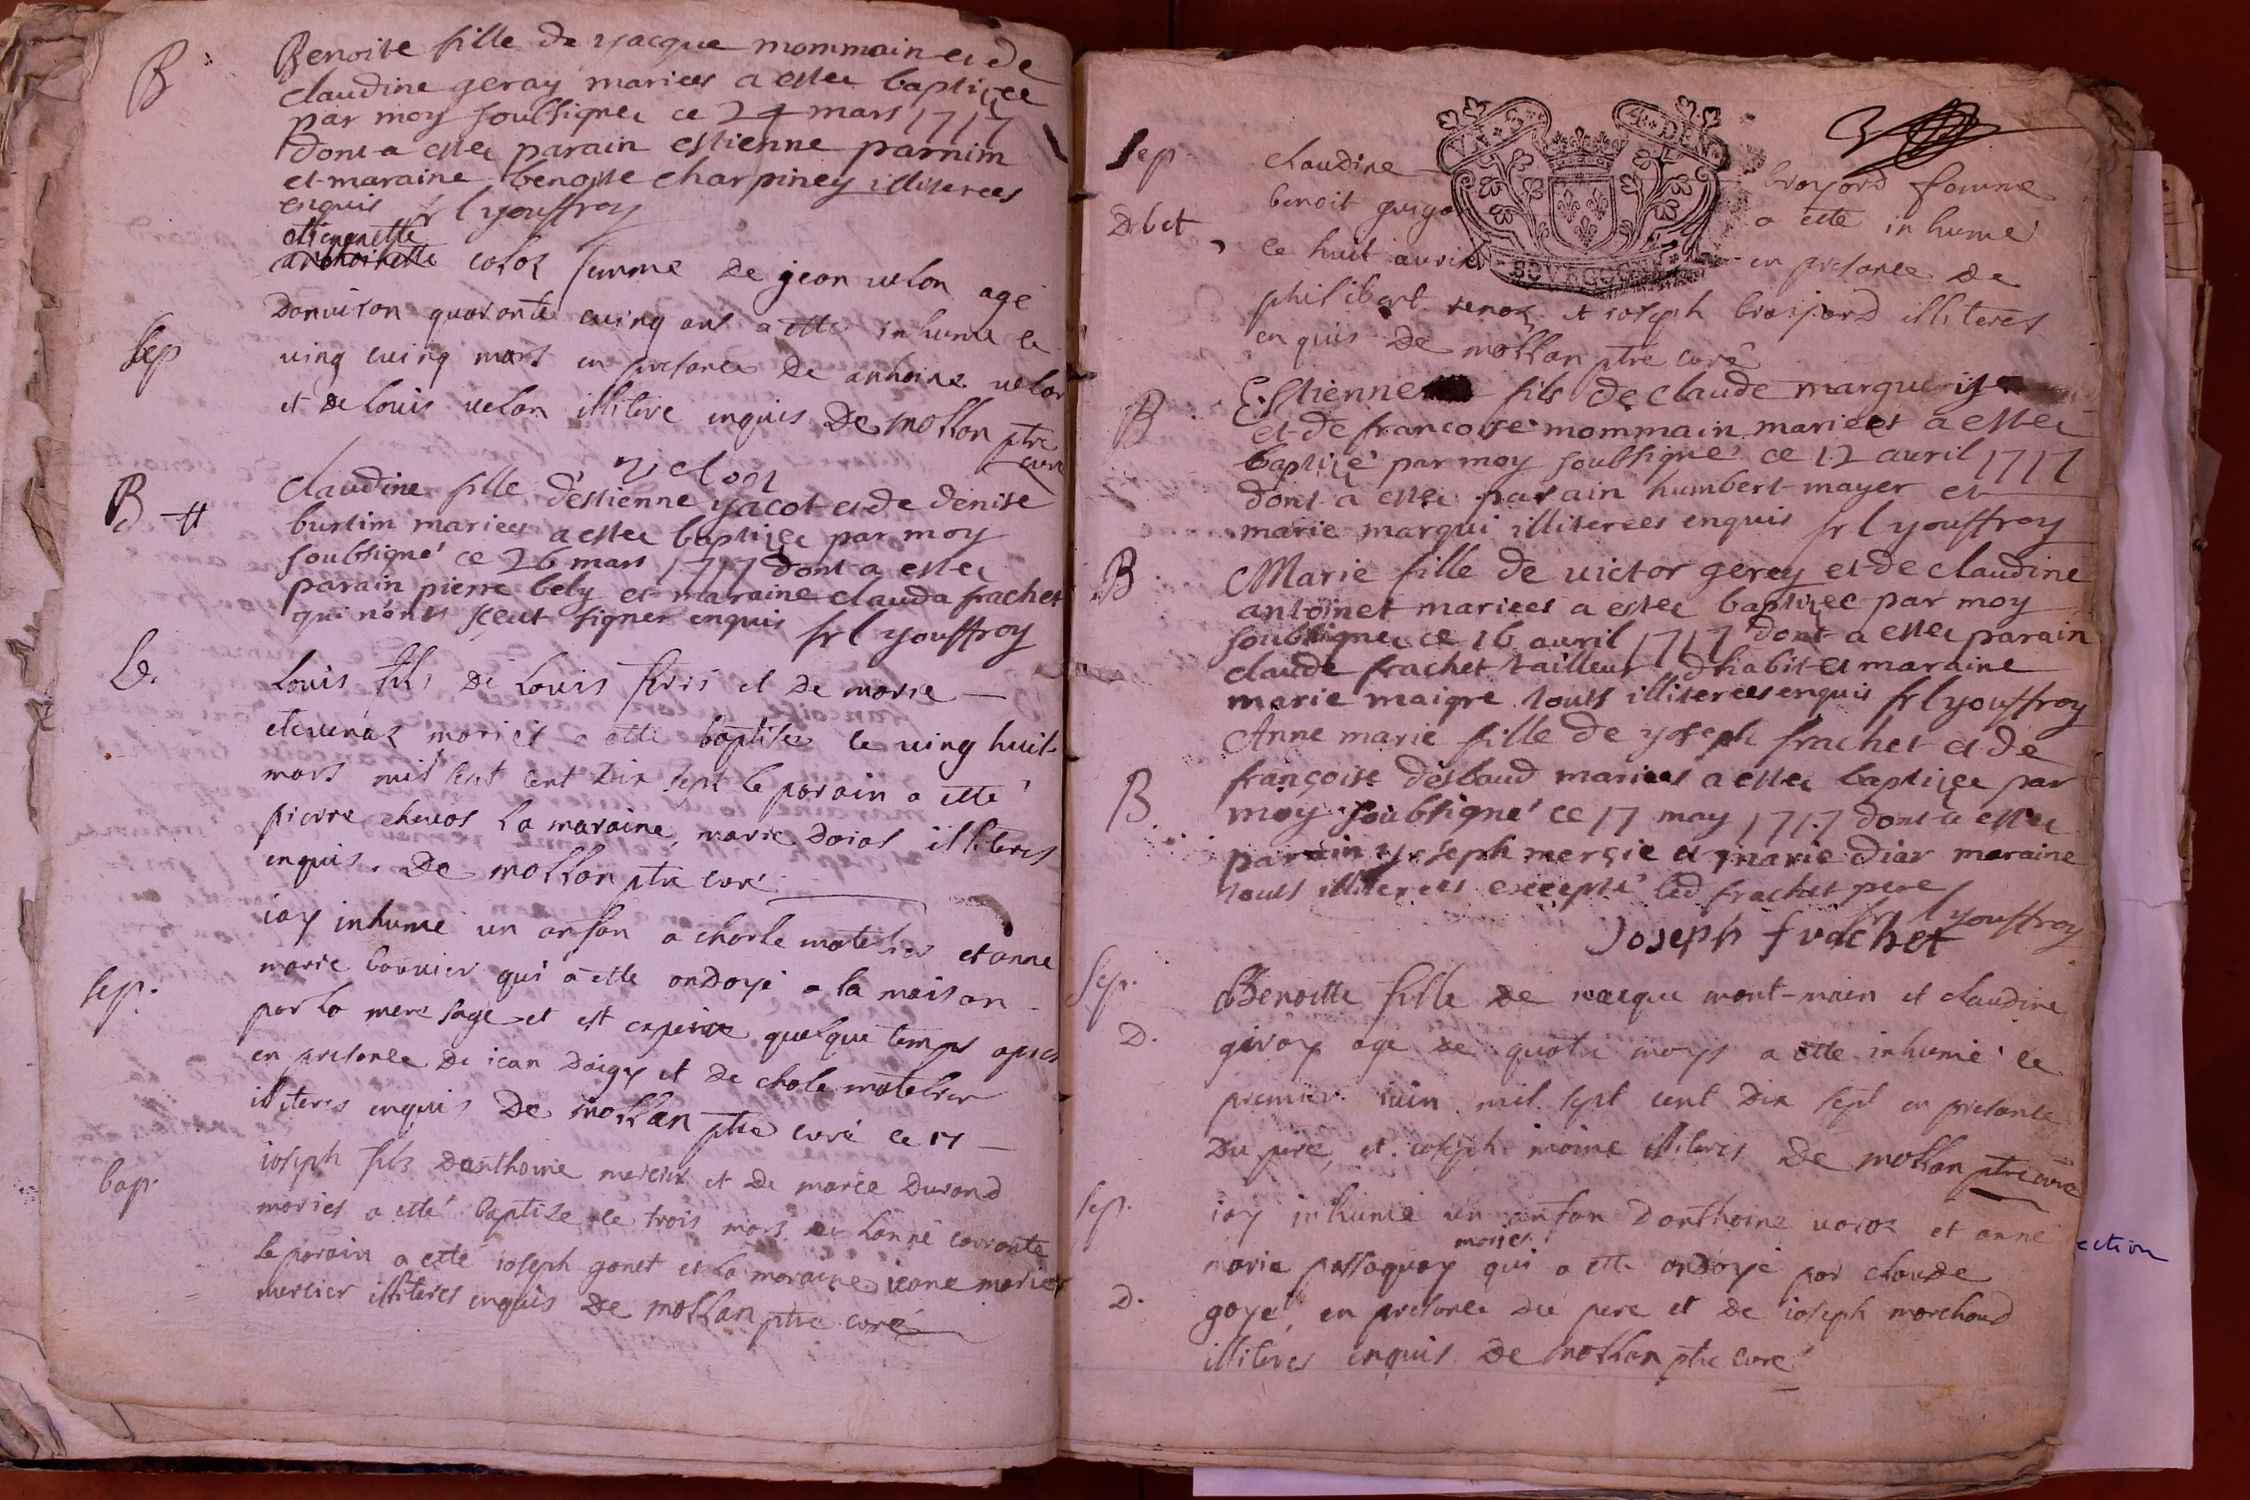 B
Benoite fille de yacque mommain et de
claudine geray mariees a estee baptizee
par moy soubsignez ce 24 mars 1717
dont a estez parain estienne parnim
et maraine benoste charpiney illiterees
enquis fr l youffroy
estienette
anthoinette coloz femme de jean velon agé
Sep
danviron quarante cuinq ans a etté inhumé le
ving cuinq mars en presance de anthoine velon
et de louis velon illitere enquis De mollan ptre
curé
B d
claudine fille d'estienne yacot et de denise
burtim mariees a estee baptizee par moy
soubsigné ce 26 mars 1717 dont a estez
parain pierre bely et maraine clauda frachet
qui n'ont sceut signer enquis fr l youffroy
b.
Louis fils de Louis et de marie
mariés a etté baptisé le ving huit
mars mil sept cent dix sept le parain a etté
pierre chevas La maraine marie doias illiteres
enquis. De mollan ptre curé
Sep.
iay inhumé un anfan a charle matelier et anne
marie bouvier qui a etté ondoyé a la maison
par la mere sage et est expiré quelque temps apres
en presance de ican doigy et de chale matelier
illiteres enquis De mollan ptre curé ce 17
bap.
ioseph fils danthoine mercier et de marie durand
mariés a etté baptizé le trois mars de lanné courante
le parain a etté ioseph gonet et la maraine
mercier illiteres enquis De mollan ptre curé
Sep.
D. bet
claudine broyard famme
benoit guigo a etté inhumé
le huit avril en presance de
philibert renoz et ioseph broipard illiterés
enquis De mollan ptre curé
VN S 4 DEN
BOVRGOGNE
B
Estienne fils de claude marguerite
et de francoise mommain mariees a estez
baptizé par moy soubsigné ce 12 avril 1717
dont a estez parain humbert mayer et
marie marqui illiterees enquis fr l youffroy
B
Marie fille de victor gerey et de claudine
antoinet mariees a estez baptizee par moy
soubsignez ce 16 avril 1717 dont a estez parain
claude frachet tailleur d'habit et maraine
marie maigre touts illiterees enquis fr l youffroy
Anne marie fille de yoseph frachet et de
B.
françoise desbaud mariees a estez baptizée par
moy soubsigné ce 17 may 1717 dont a estez
parain yoseph mercie et marie diar maraine
touts illiterees excepté led frachet pere
fr l youffroy
Joseph frachet
Sep.
D.
Benoitte fille de iacque mont-main et claudine
giroy age de quatre moys a etté inhumé le
premier iuin mil sept cent dix sept en presance
du pere, et ioseph moine illiteres De mollan ptre curé
Sep.
iay inhumé un anfan danthoine voroz et anne
mariés
marie passaquay qui a etté ondoyé par claude
D.
goye, en presance du pere et de ioseph marchand
illiteres enquis De mollan ptre curé
ection